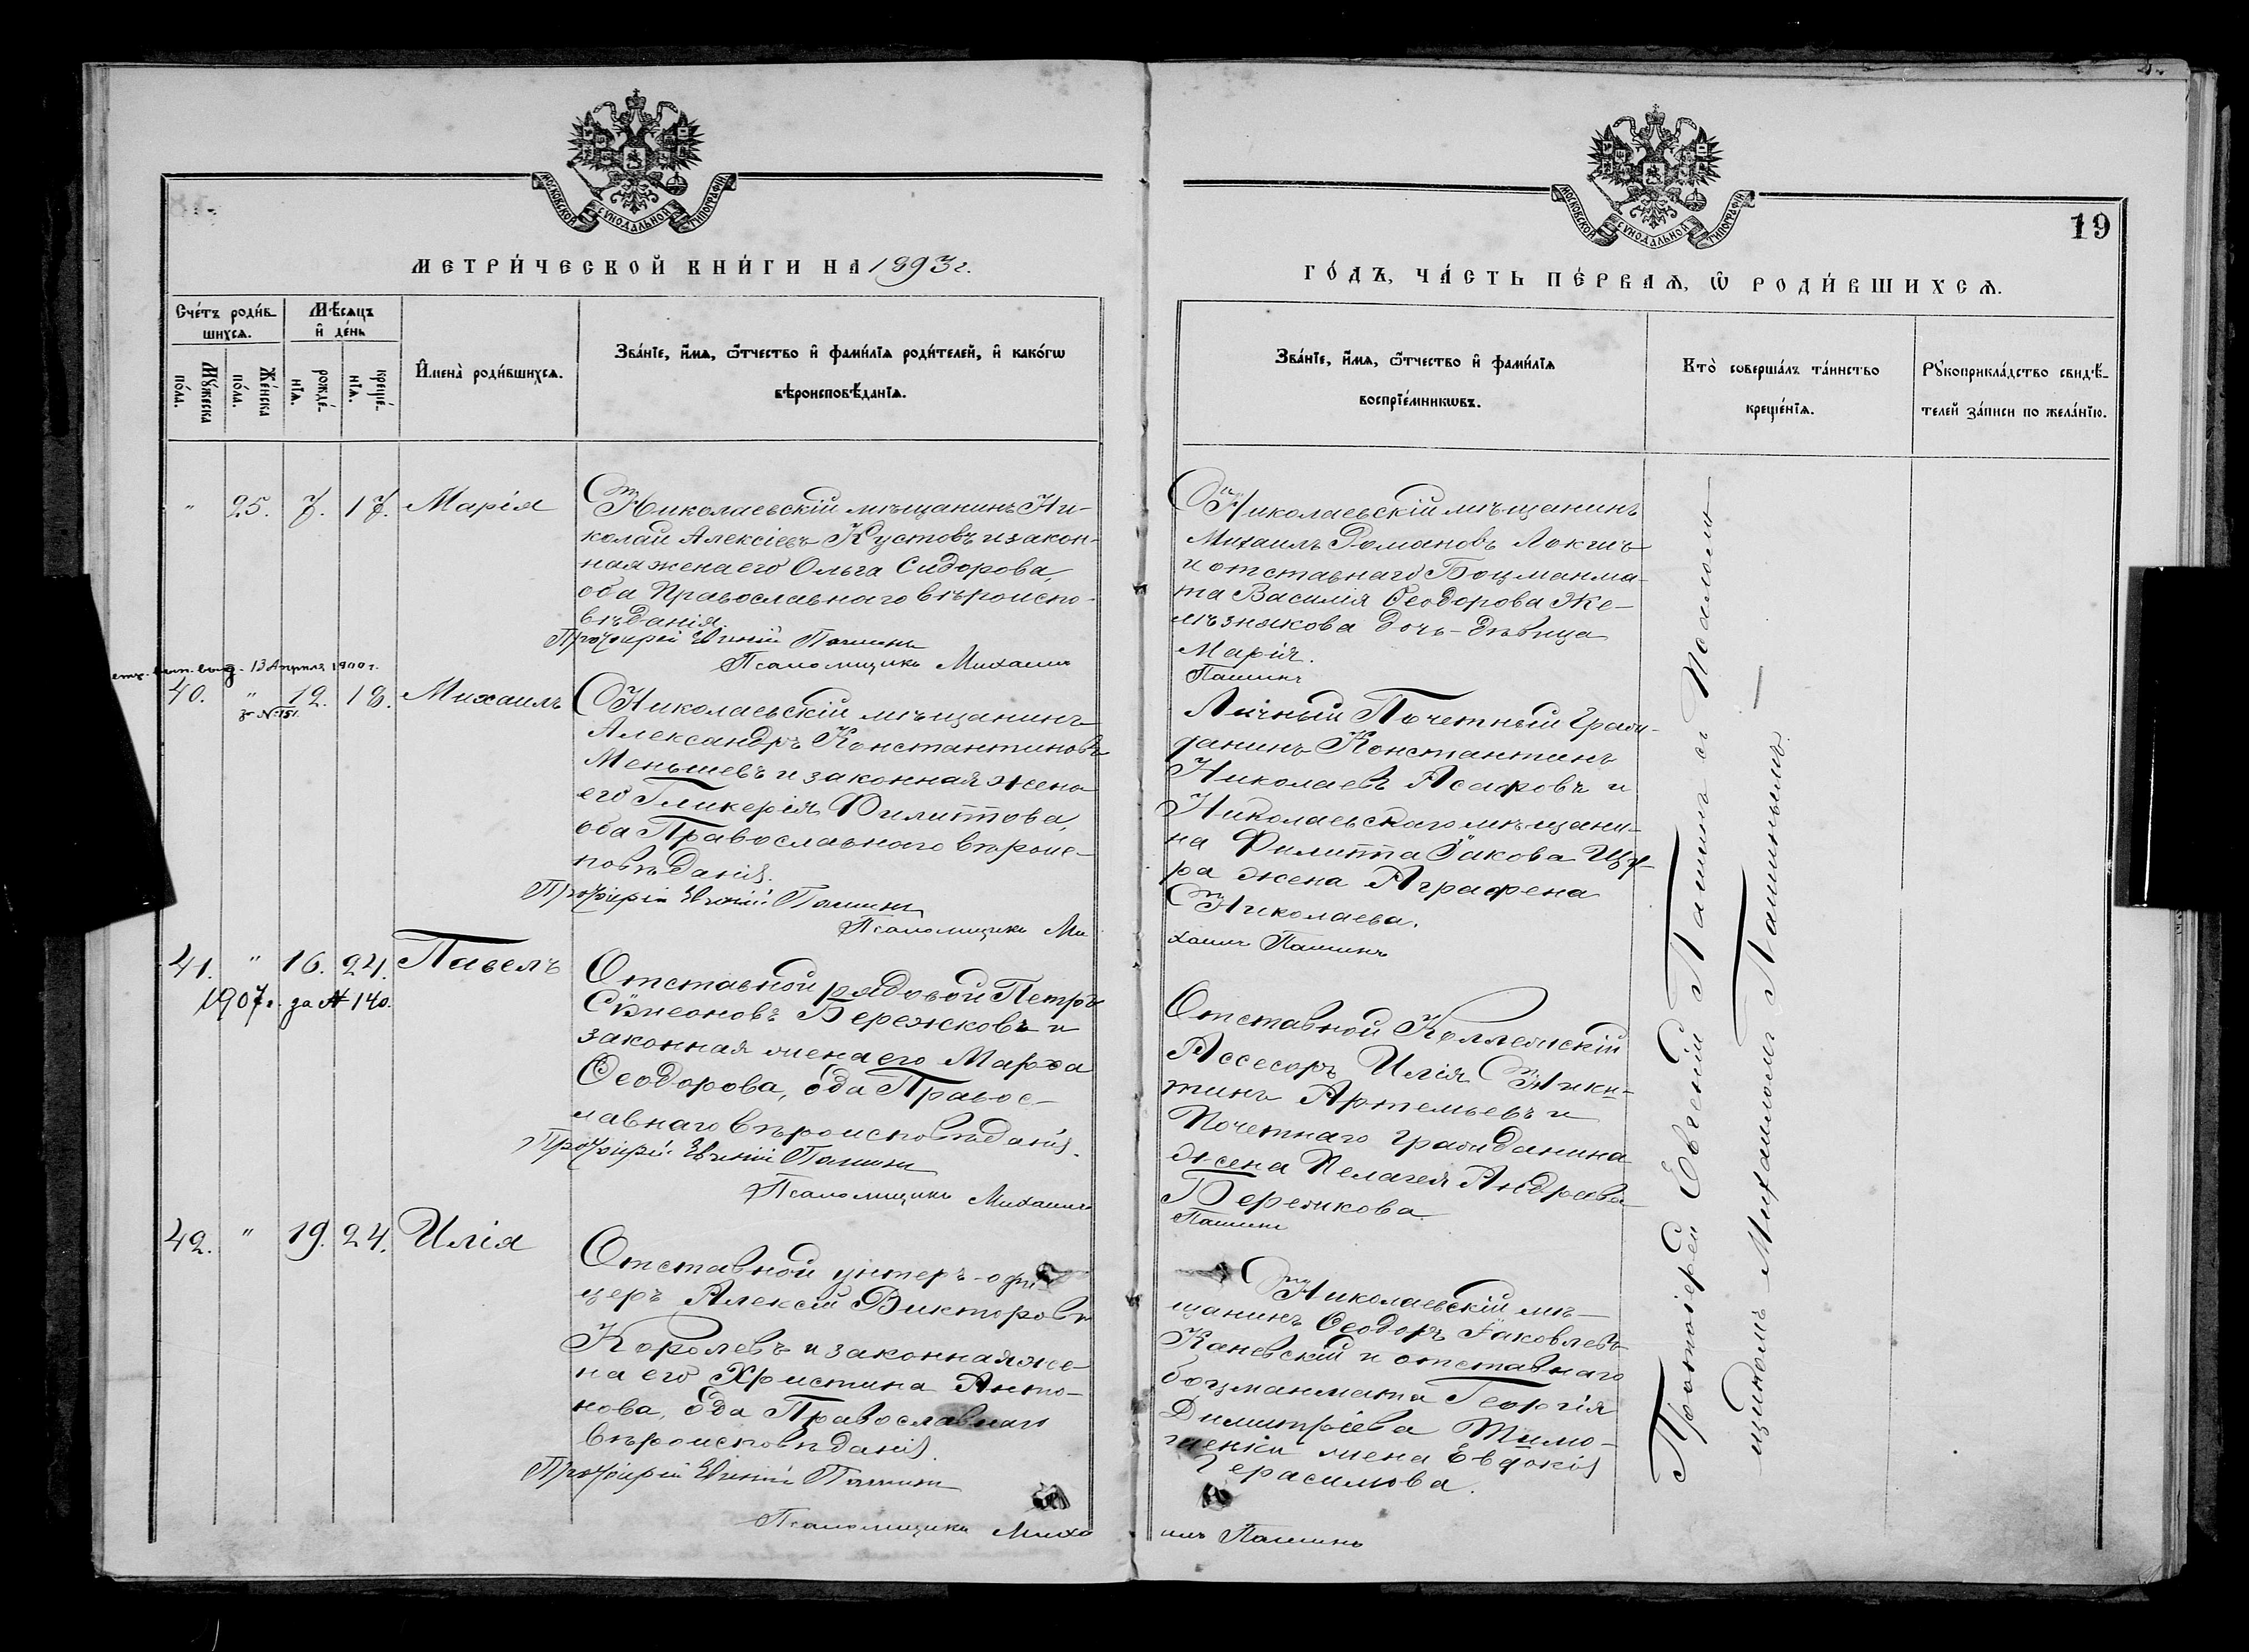 МОСКОВСКОЙ СѴНОДАЛЬНОЙ ТИПОГРАФІИ
МЕТРИ́ЧЕСКОЙ КНИ́ГИ НА 1893 г.
Сче́тъ роди́в-
шихсѧ.
Мѣ́сѧцъ
и҆ де́нь
Му́жеска
по́ла.
Же́нска
по́ла.
рожде́-
нїѧ.
креще́-
нїѧ.
И҆мена̀ роди́вшихсѧ.
Зва́нїе, и҆́мѧ, ѻ҆́тчество и҆ фами́лїѧ роди́телей, и҆ како́гѡ
вѣроисповѣ́данїѧ.
" 25. 7. 17. Марія
Николаевскій мѣщанинъ Ни-
колай Алексіевъ Кустовъ и закон-
ная жена его Ольга Сидорова,
оба Православнаго вѣроиспо-
вѣданія.
Протоіерей Евгеній Пашинъ
Псаломщикъ Михаилъ
13 Апрѣля 1900 г.
40. " 12. 18. Михаилъ
за № 151.
Николаевскій мѣщанинъ
Александръ Константиновъ
Меньшевъ и законная жена
его Гликерія Филиппова,
оба Православнаго вѣроис-
повѣданія.
Протоіерей Евгеній Пашинъ
Псаломщикъ Ми
41. " 16. 24. Павелъ
1907 г. за № 140.
Отставной рядовой Петръ
Сѵмеоновъ Бережковъ и
законная жена его Марѳа
Ѳеодорова, оба Правос-
лавнаго вѣроисповѣданія.
Протоіерей Евгеній Пашинъ
Псаломщикъ Михаилъ
42. " 19. 24. Илія
Отставной унтеръ-офи-
церъ Алексій Викторовъ
Королевъ и законная же-
на его Христина Анто-
нова, оба Православнаго
вѣроисповѣданія.
Протоіерей Евгеній Пашинъ
Псаломщикъ Миха
МОСКОВСКОЙ СѴНОДАЛЬНОЙ ТИПОГРАФІИ
19
ГО́ДЪ, ЧА́СТЬ ПЕ́РВАѦ, Ѽ РОДИ́ВШИХСѦ.
Зва́нїе, и҆́мѧ, ѻ҆́тчество и҆ фами́лїѧ
воспрїе́мникѡвъ.
Кто̀ соверша́лъ та́инство
креще́нїѧ.
Рꙋкоприкла́дство свидѣ́-
телей за́писи по жела́нїю.
Николаевскій мѣщанинъ
Михаилъ Романовъ Локшъ
и отставнаго Боцманма-
та Василія Ѳеодорова Же-
лѣзнякова дочь-дѣвица
Марія.
Пашинъ
Личный Почетный Граж-
данинъ Константинъ
Николаевъ Асафовъ и
Николаевскаго мѣщани-
на Филиппа Іакова Щу-
ра жена Аграфена
Николаева.
хаилъ Пашинъ
Отставной Коллежскій
Ассесоръ Илія Ники-
тинъ Артемьевъ и
Почетнаго гражданина
жена Пелагея Андреева
Бережкова.
Пашинъ
Николаевскій мѣ-
щанинъ Ѳеодоръ Іаковлевъ
Каневскій и отставнаго
боцманмата Георгія
Димитріева Тимо-
жена Евдокія
Герасимова.
илъ Пашинъ
Протоіерей Евгеній Пашинъ съ Псалом-
щикомъ Михаиломъ Пашинымъ.